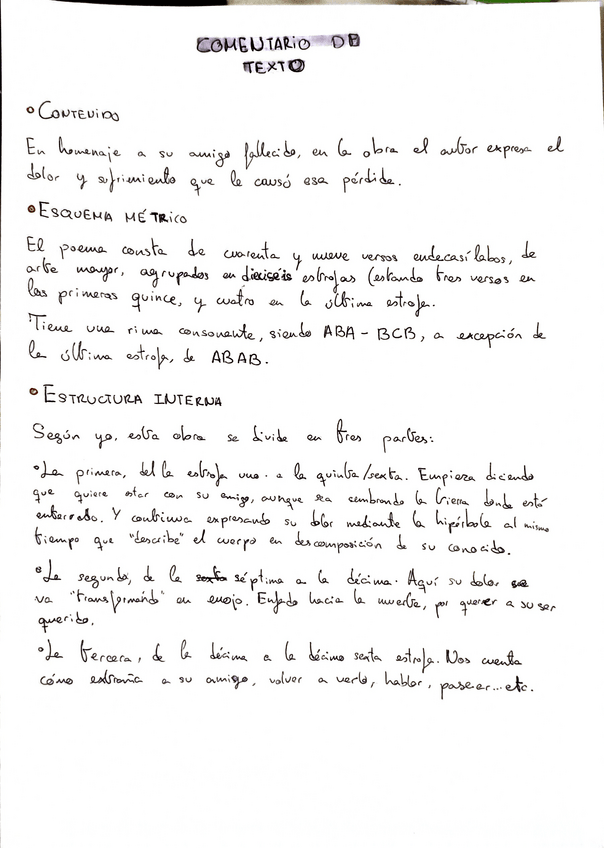 COMENTARIO DE
TEXTO
• CONTENIDO
En homenaje a su amigo fallecido, en la obra el autor expresa el
dolor y sufrimiento que le causó esa pérdida.
• ESQUEMA MÉTRICO
El poema consta de cuarenta y nueve versos endecasílabos, de
arte mayor, agrupados en dieciséis estrofas (estando tres versos en
las primeras quince, y cuatro en la última estrofa.
Tiene una rima consonante, siendo ABA - BCB, a excepción de
la última estrofa, de ABAB.
• ESTRUCTURA INTERNA
Según yo, esta obra se divide en tres partes:
• La primera, del la estrofa uno a la quinta/sexta. Empieza diciendo
que quiere estar con su amigo, aunque sea sembrando la tierra donde está
enterrado. Y continua expresando su dolor mediante la hipérbole al mismo
tiempo que "describe" el cuerpo en descomposición de su conocido.
• La segunda, de la sexta séptima a la décima. Aquí su dolor se
va "transformando" en enojo. Enfado hacia la muerte, por querer a su ser
querido.
• La tercera, de la décima a la décimo sexta estrofa. Nos cuenta
cómo extraña a su amigo, volver a verlo, hablar, pasear... etc.